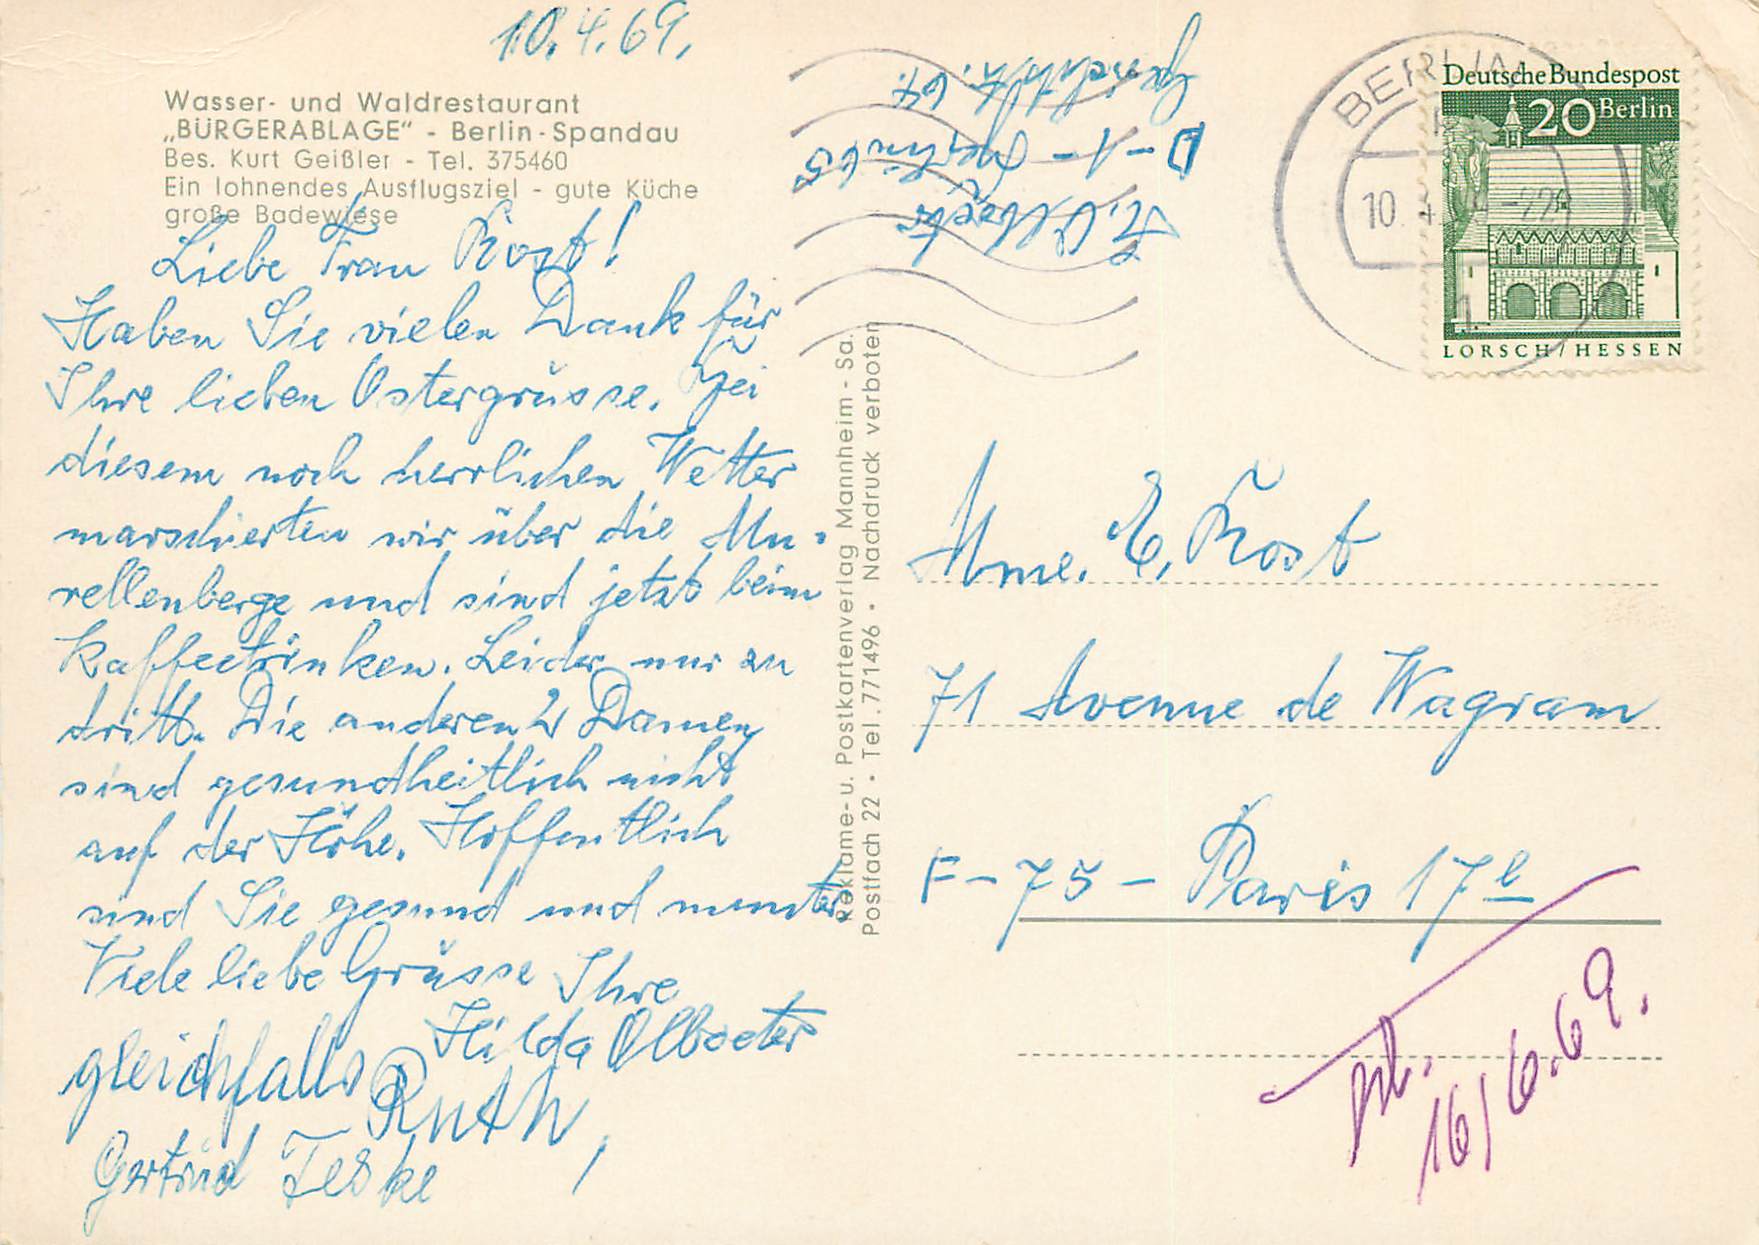 10.4.69.
Wasser- und Waldrestaurant
„BÜRGERABLAGE“ - Berlin-Spandau
Bes. Kurt Geißler - Tel. 375460
Ein lohnendes Ausflugsziel - gute Küche
große Badewiese
Liebe Frau Rost!
Haben Sie vielen Dank für
Ihre lieben Ostergrüsse. Bei
diesem noch herrlichen Wetter
marschierten wir über die Mu-
rellenberge und sind jetzt beim
Kaffeetrinken. Leider nur zu
dritt. Die anderen 2 Damen
sind gesundheitlich nicht
auf der Höhe. Hoffentlich
sind Sie gesund und munter.
Viele liebe Grüsse Ihre
Hilda Olboeter
gleichfalls Ruth,
Gertrud Teske
Reklame- u. Postkartenverlag Mannheim - Sa.
Postfach 22 • Tel. 771496 • Nachdruck verboten
H. Olboeter
D-1-Berlin 65
64.
BERLIN
10.4.
1
Deutsche Bundespost
20 Berlin
LORSCH/HESSEN
Mme. E. Rost
71 Avenue de Wagram
F-75-Paris 17e
16/6.69.